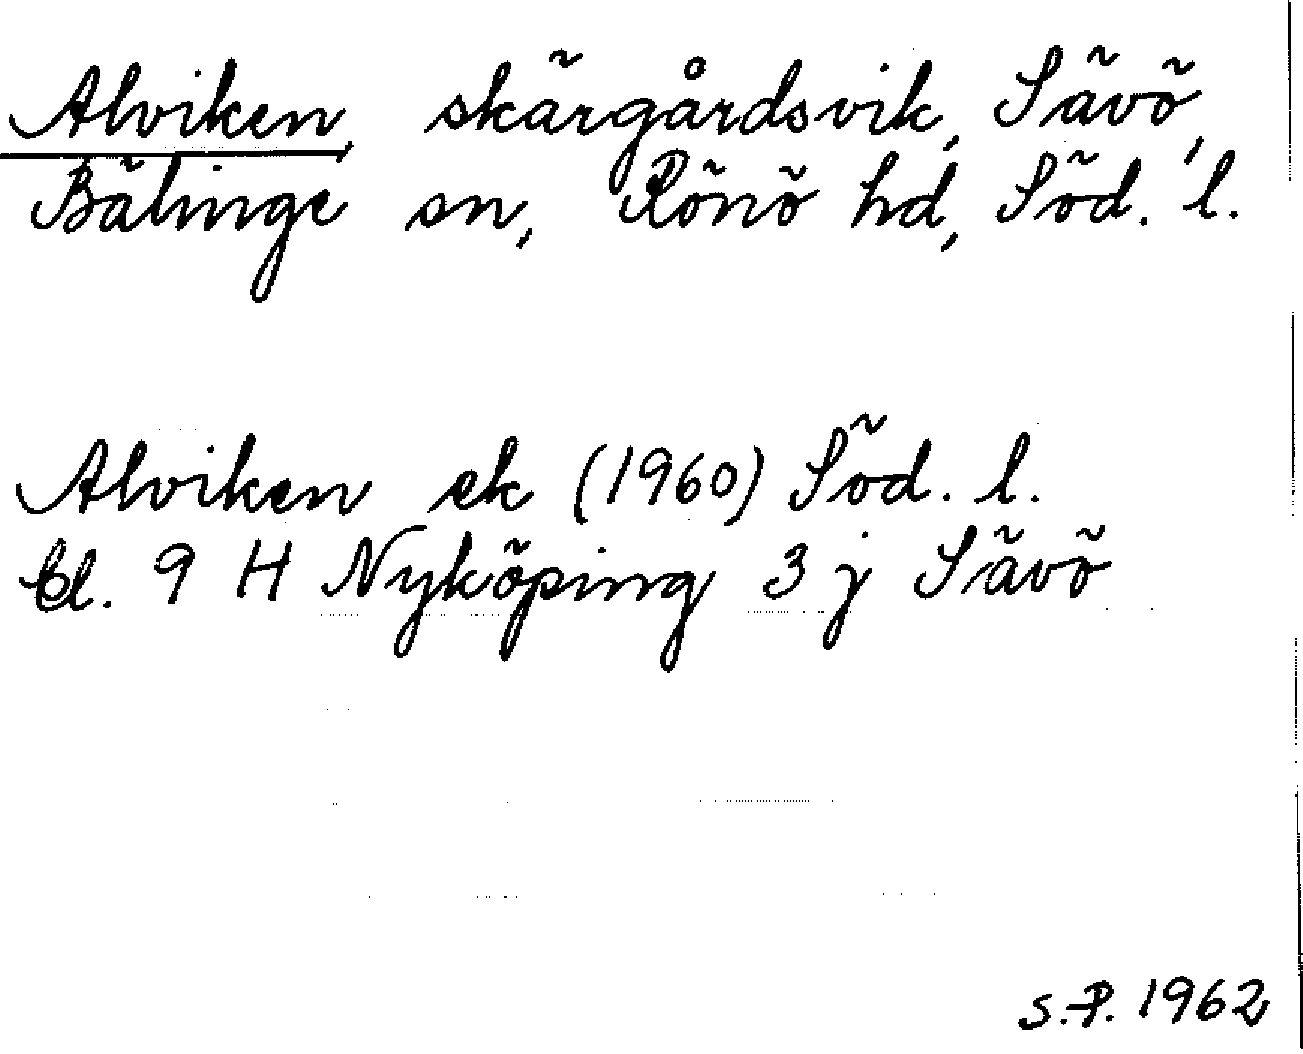 Alviken, skärgårdsvik, Sävö,
Bälinge sn, Rönö hd, Söd. l.
Alviken ek (1960) Söd. l.
bl. 9 H Nyköping 3 j Sävö
S.P. 1962